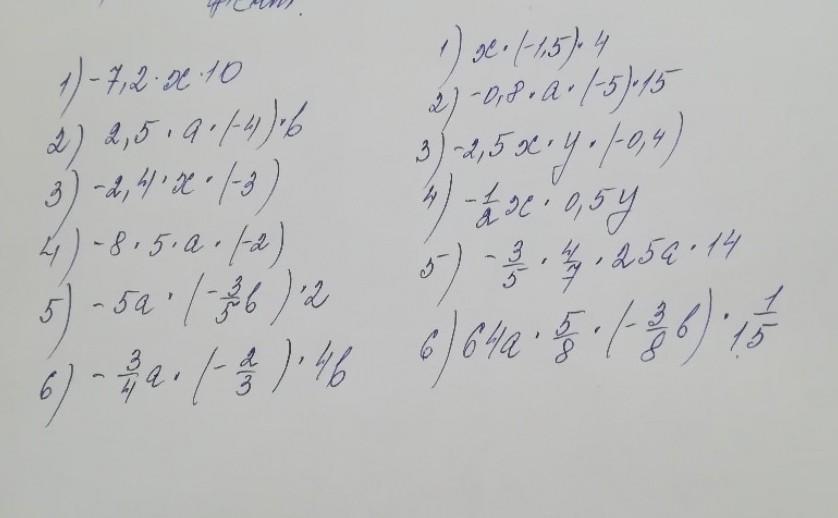 1) -7,2 · x · 10
2) 2,5 · a · (-4) · b
3) -2,4 · x · (-3)
4) -8 · 5 · a · (-2)
5) -5a · (-3/5 b) · 2
6) -3/4 a · (-2/3) · 4b
1) x · (-1,5) · 4
2) -0,8 · a · (-5) · 15
3) -2,5x · y · (-0,4)
4) -1/2 x · 0,5y
5) -3/5 · 4/7 · 25a · 14
6) 64a · 5/8 · (-3/8 b) · 1/15